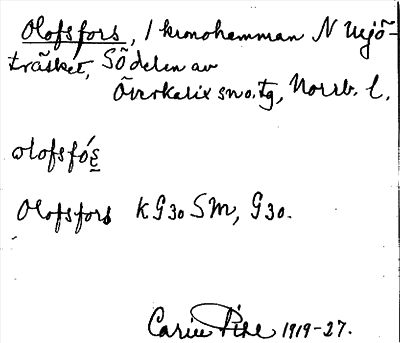 Olofsfors, 1 kronohemman N Mjö-
träsket, Södelen av
Överkalix sn o. tg, Norrb. l.
olofsfo´s̲
Olofsfors kG30 SM, G30.
Carin Pihl 1919-27.